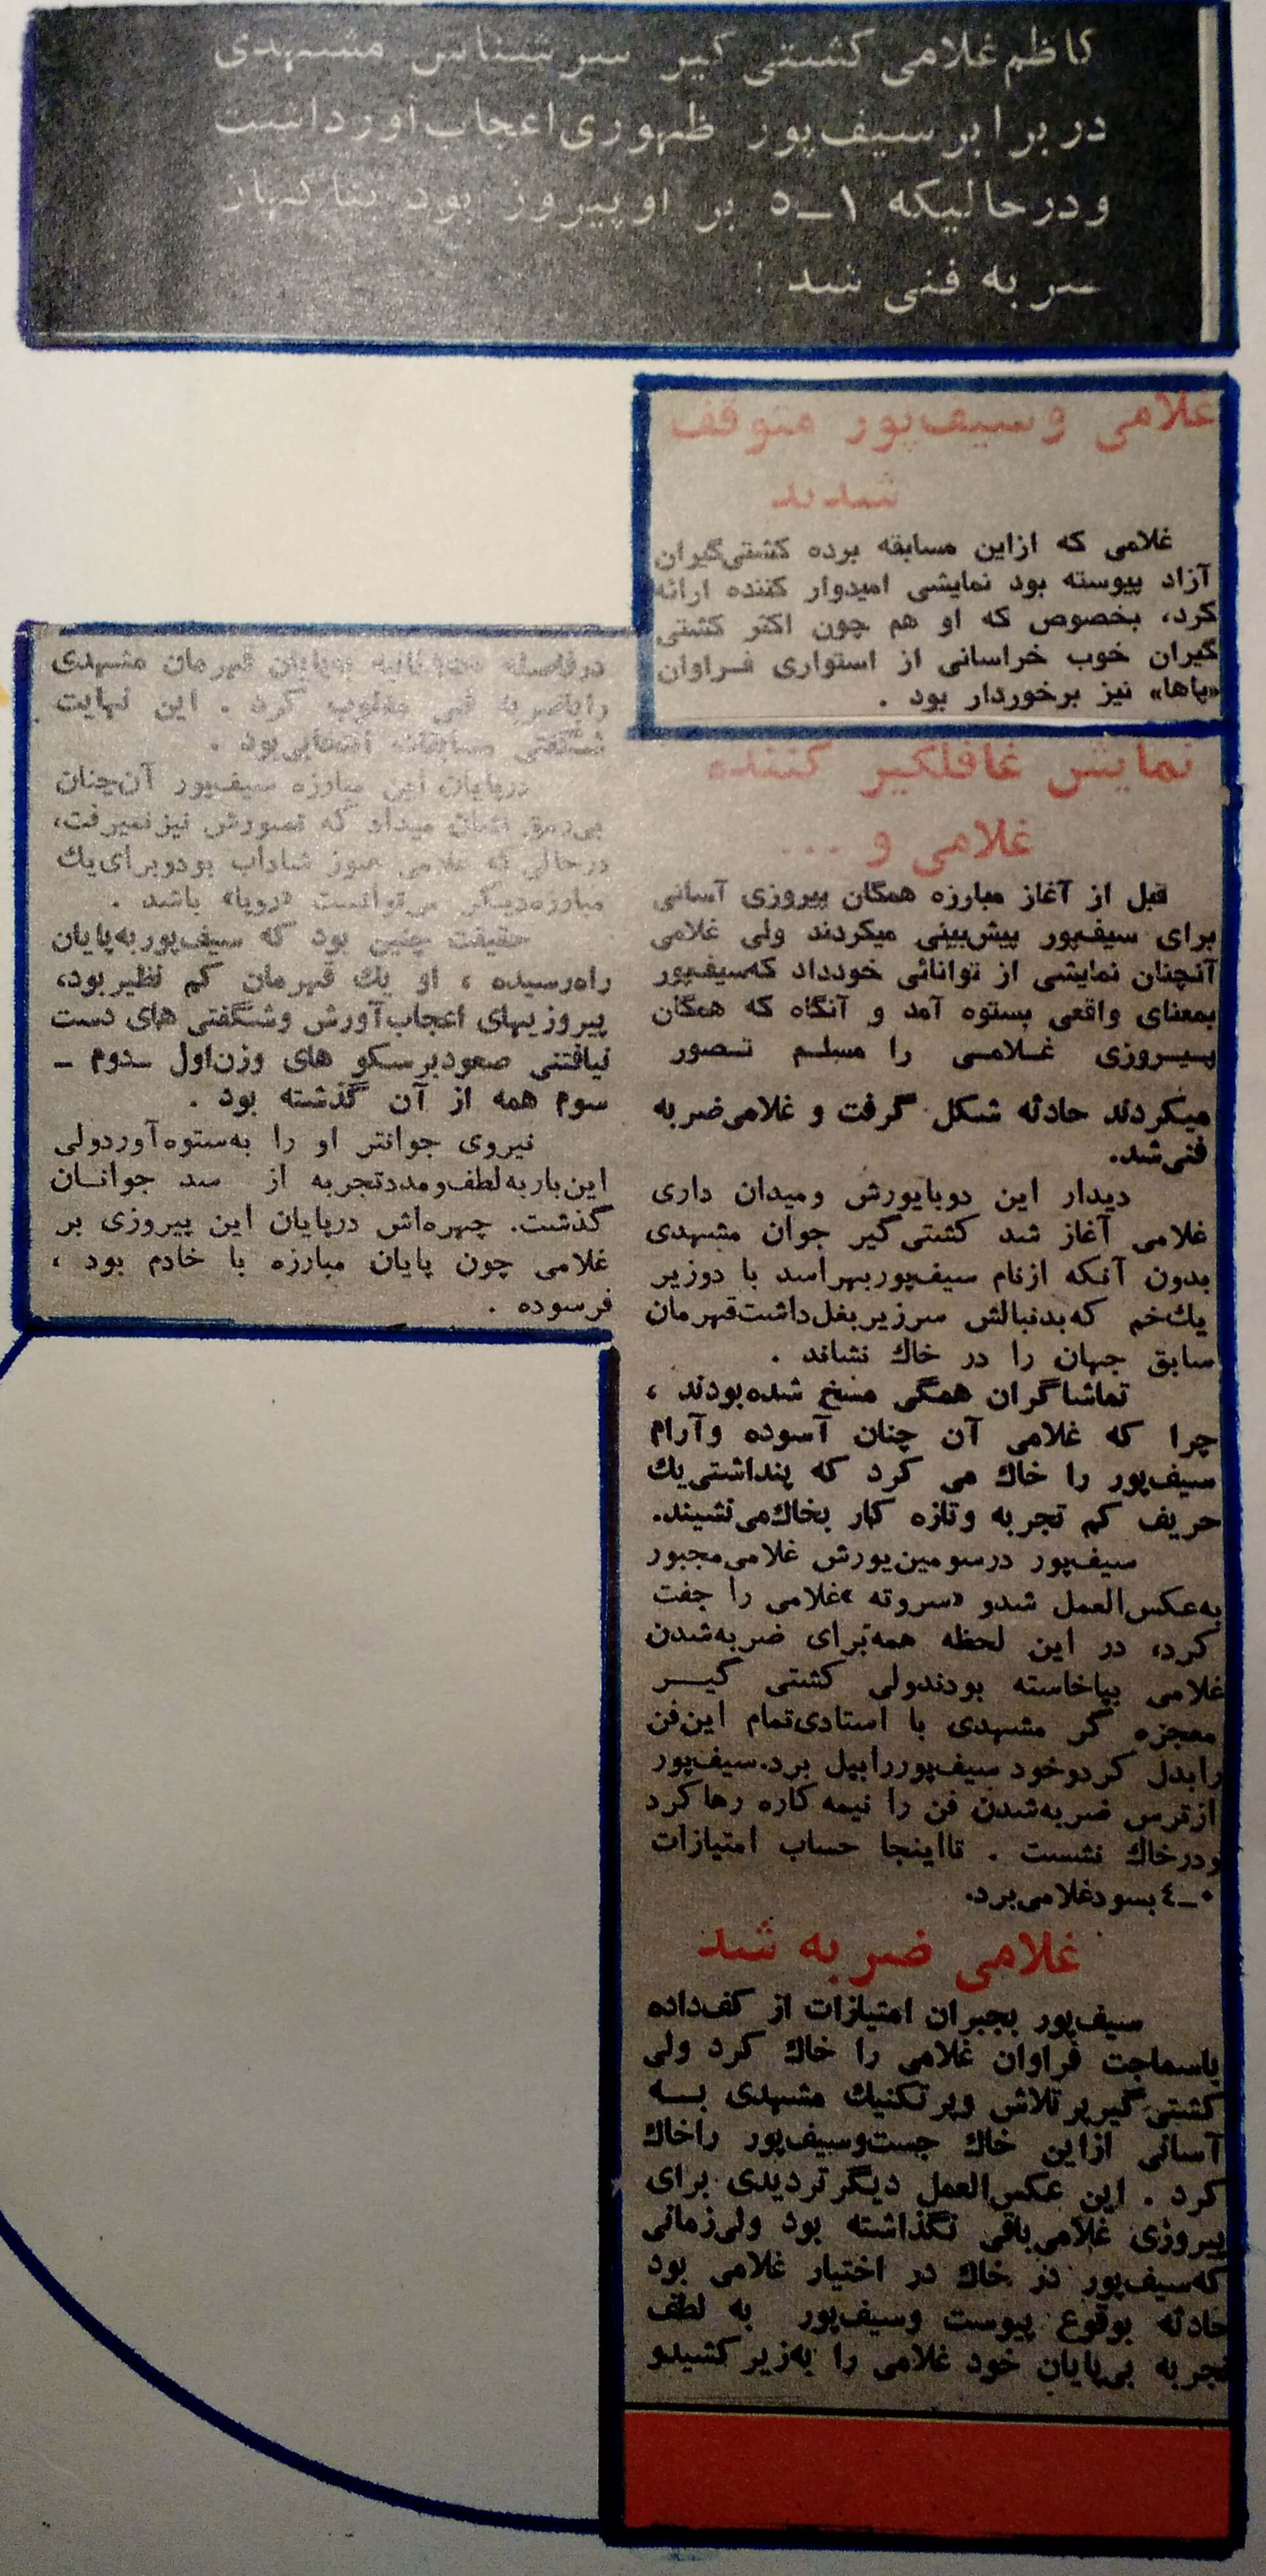 کاظم غلامی کشتی گیر سرشناس مشهدی
در برابر سیف‌پور ظهوری اعجاب‌آور داشت
و درحالیکه ۱ــ۵ بر او پیروز بود بناگهان
ضربه فنی شد !
غلامی و سیف‌پور متوقف
شدند
غلامی که ازاین مسابقه برده کشتی‌گیران
آزاد پیوسته بود نمایشی امیدوار کننده ارائه
کرد، بخصوص که او هم چون اکثر کشتی
گیران خوب خراسانی از استواری فـراوان
«پاها» نیز برخوردار بود .
نمایش غافلگیر کننده
غلامی و ...
قبل از آغاز مبارزه همگان پیروزی آسانی
برای سیف‌پور پیش‌بینی میکردند ولی غلامی
آنچنان نمایشی از توانائی خودداد که‌سیف‌پور
بمعنای واقعی بستوه آمد و آنگاه که همگان
پـیـروزی غـلامـی را مسلـم تـصور
میکردند حادثه شکل گرفت و غلامی ضربه
فنی‌شد.
دیدار این دوبایورش ومیدان داری
غلامی آغاز شد کشتی گیر جوان مشهدی
بدون آنکه ازنام سیف‌پوربهراسد با دوزیر
یك‌خم که‌بدنبالش سرزیربغل‌داشت‌قهرمان
سابق جهان را در خاك نشاند .
تماشاگران همگی مسخ شده‌بودند ،
چرا که غلامی آن چنان آسوده وآرام
سیف‌پور را خاك می کرد که پنداشتی‌یك
حریف کم تجربه وتازه کار بخاك‌می‌نشیند.
سیف‌پور درسومین‌یورش غلامی‌مجبور
به‌عکس‌العمل شدو «سروته »غلامی را جفت
کرد، در این لحظه همه‌برای ضربه‌شدن
غلامی بپاخاسته بودندولی کشتی گیــر
معجزه گر مشهدی با استادی‌تمام این‌فن
رابدل کردوخود سیف‌پوررابپل برد.سیف‌پور
ازترس ضربه‌شدن فن را نیمه کاره رها کرد
ودرخاك نشست . تااینجا حساب امتیازات
۰ــ٤ بسودغلامی‌برد.
غلامی ضربه شد
سیف‌پور بجبران امتیازات از کف‌داده
باسماجت فراوان غلامی را خاك کرد ولی
کشتی گیرپرتلاش وپرتکنیك مشهدی بــه
آسانی ازاین خاك جست‌وسیف‌پور راخاك
کرد . این عکس‌العمل دیگر تردیدی برای
پیروزی غلامی‌باقی نگذاشته بود ولی‌زمانی
که‌سیف‌پور در خاك در اختیار غلامی بود
حادثه بوقوع پیوست وسیف‌پور به لطف
تجربه بی‌پایان خود غلامی را به‌زیر کشیدو
درفاصله ثانیه بپایان قهرمان مشهدی
راباضربه فنی مغلوب کرد . این نهایت
شگفتی مسابقات انتخابی‌بود .
درپایان این مبارزه سیف‌پور آن‌چنان
بی‌رمق نشان میداد که تصورش نیزنمیرفت،
درحالی که غلامی هنوز شاداب بودوبرای‌یك
مبارزه‌دیگر می‌توانست «روپا» باشد .
حقیقت چنین بود که سیف‌پوربه‌پایان
راه‌رسیده ، او یك قهرمان کم نظیربود،
پیروزیهای اعجاب‌آورش وشگفتی های دست
نیافتنی صعودبرسکو های وزن‌اول ــدوم ــ
سوم همه از آن گذشته بود .
نیروی جوانتر او را به‌ستوه‌آوردولی
این‌باربه‌لطف‌ومددتجربه از سد جوانـان
گذشت. چهره‌اش درپایان این پیروزی بر
غلامی چون پایان مبارزه با خادم بود ،
فرسوده .